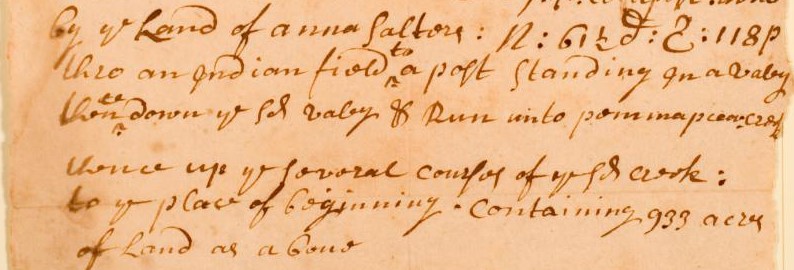 by ye Land of anna Salters : N : 61½ d : E : 118 p
thro an Indian field to a post Standing In a Valey
thence down ye sd Valey & Run unto pommapecon creek
thence up ye several courses of ye sd creek :
to ye place of beginning . Containing 933 acres
of Land as above